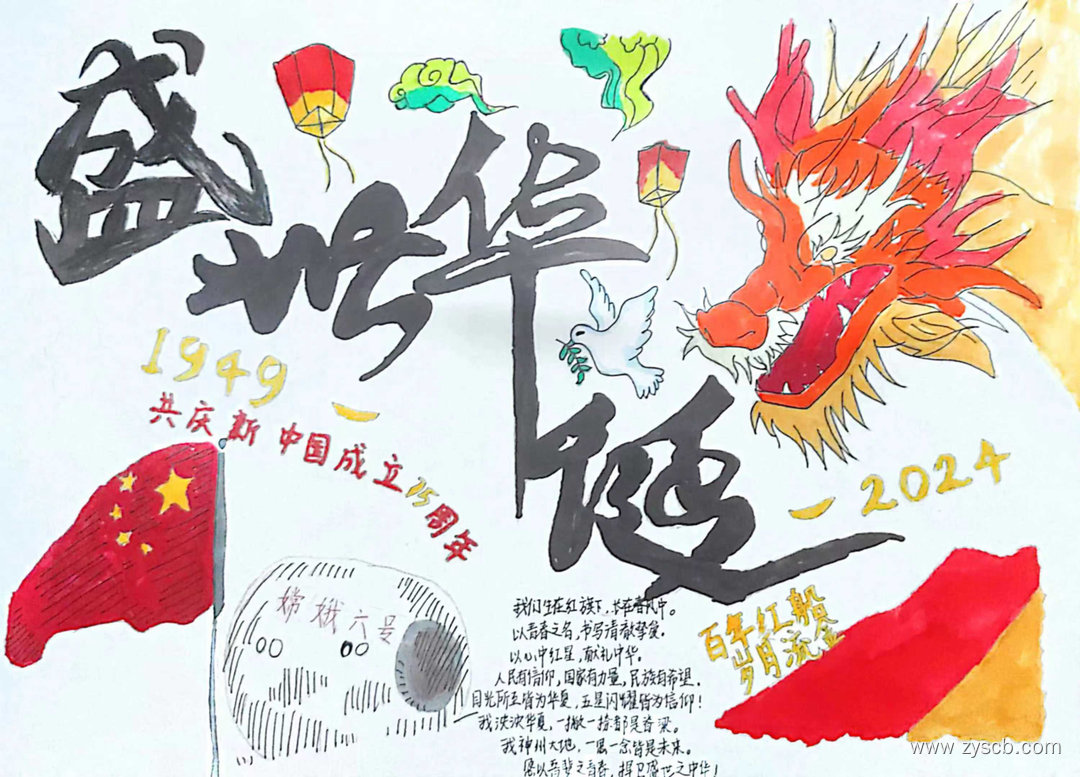 盛世华诞
1949
共庆新中国成立75周年
2024
嫦娥六号
百年红船
岁月流金
我们生在红旗下，长在春风中。
以青春之名，书写清澈挚爱。
以心中红星，献礼中华。
人民有信仰，国家有力量，民族有希望。
目光所至皆为华夏，五星闪耀皆为信仰！
我泱泱华夏，一撇一捺都是脊梁。
我神州大地，一思一念皆是未来。
愿以吾辈之青春，捍卫盛世之中华！
www.zyscb.com